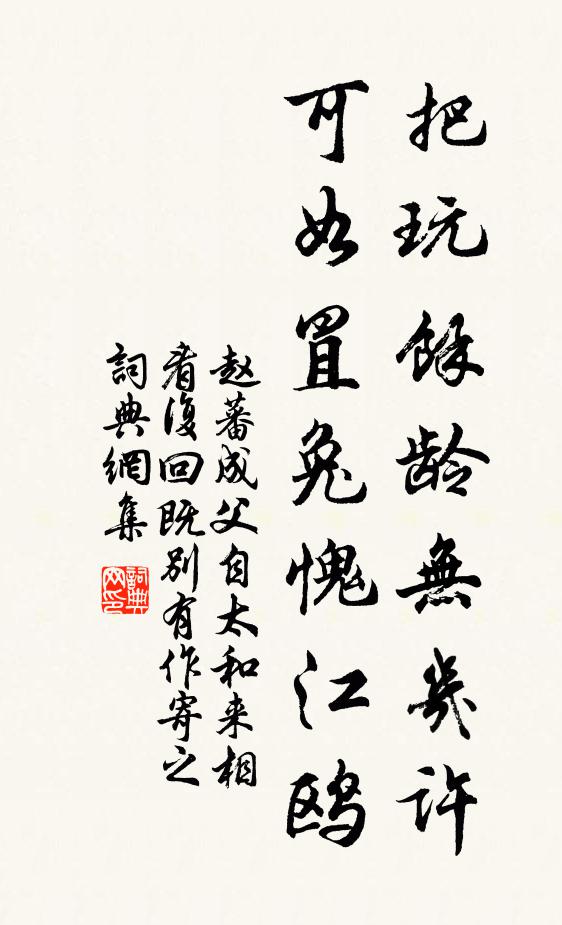 把玩餘龄無幾許
可如罝兔愧江鸥
赵蕃成父自太和来相
看復回既别有作寄之
詞典網集
詞典网印